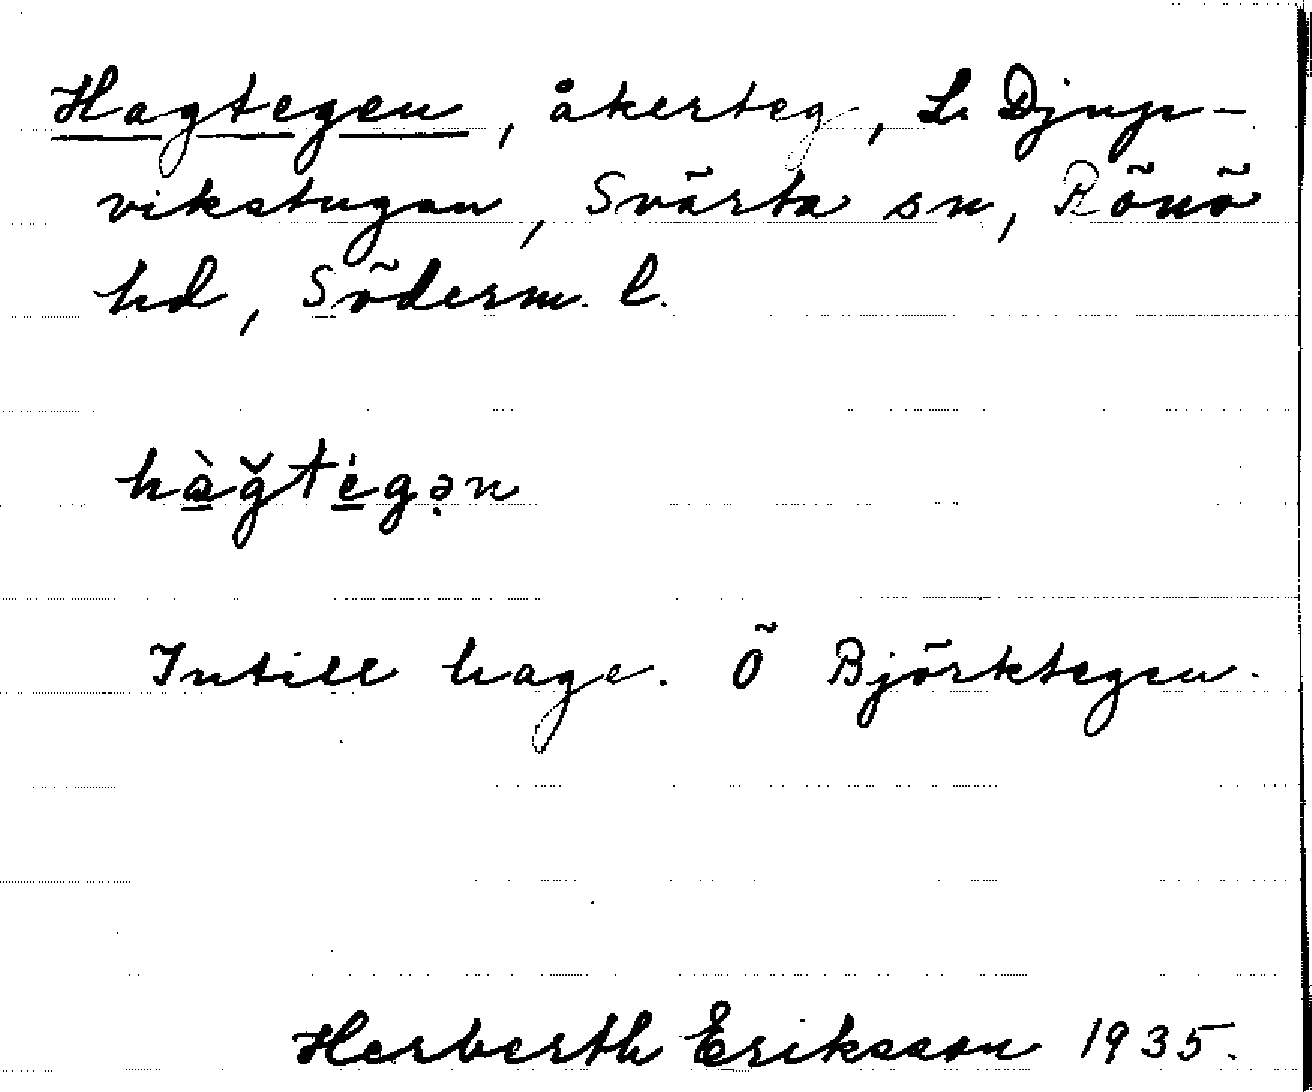 Hagtegen, åkerteg, L. Djup-
vikstugan, Svärta sn, Rönö
hd, Söderm. l.
hàğtégə̣n
Intill hage. Ö Björktegen.
Herberth Eriksson 1935.